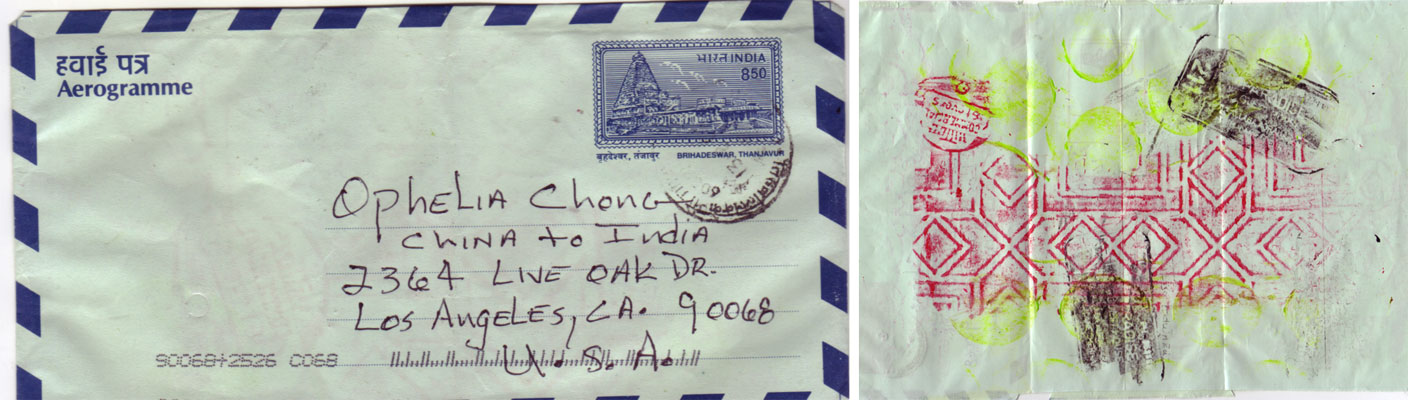 हवाई पत्र
Aerogramme
भारत INDIA
850
बृहदेश्वर, तंजावुर BRIHADESWAR, THANJAVUR
OPHELIA CHONG
CHINA to INDIA
2364 LIVE OAK DR.
LOS ANGELES, CA. 90068
U.S.A.
90068+2526 C068